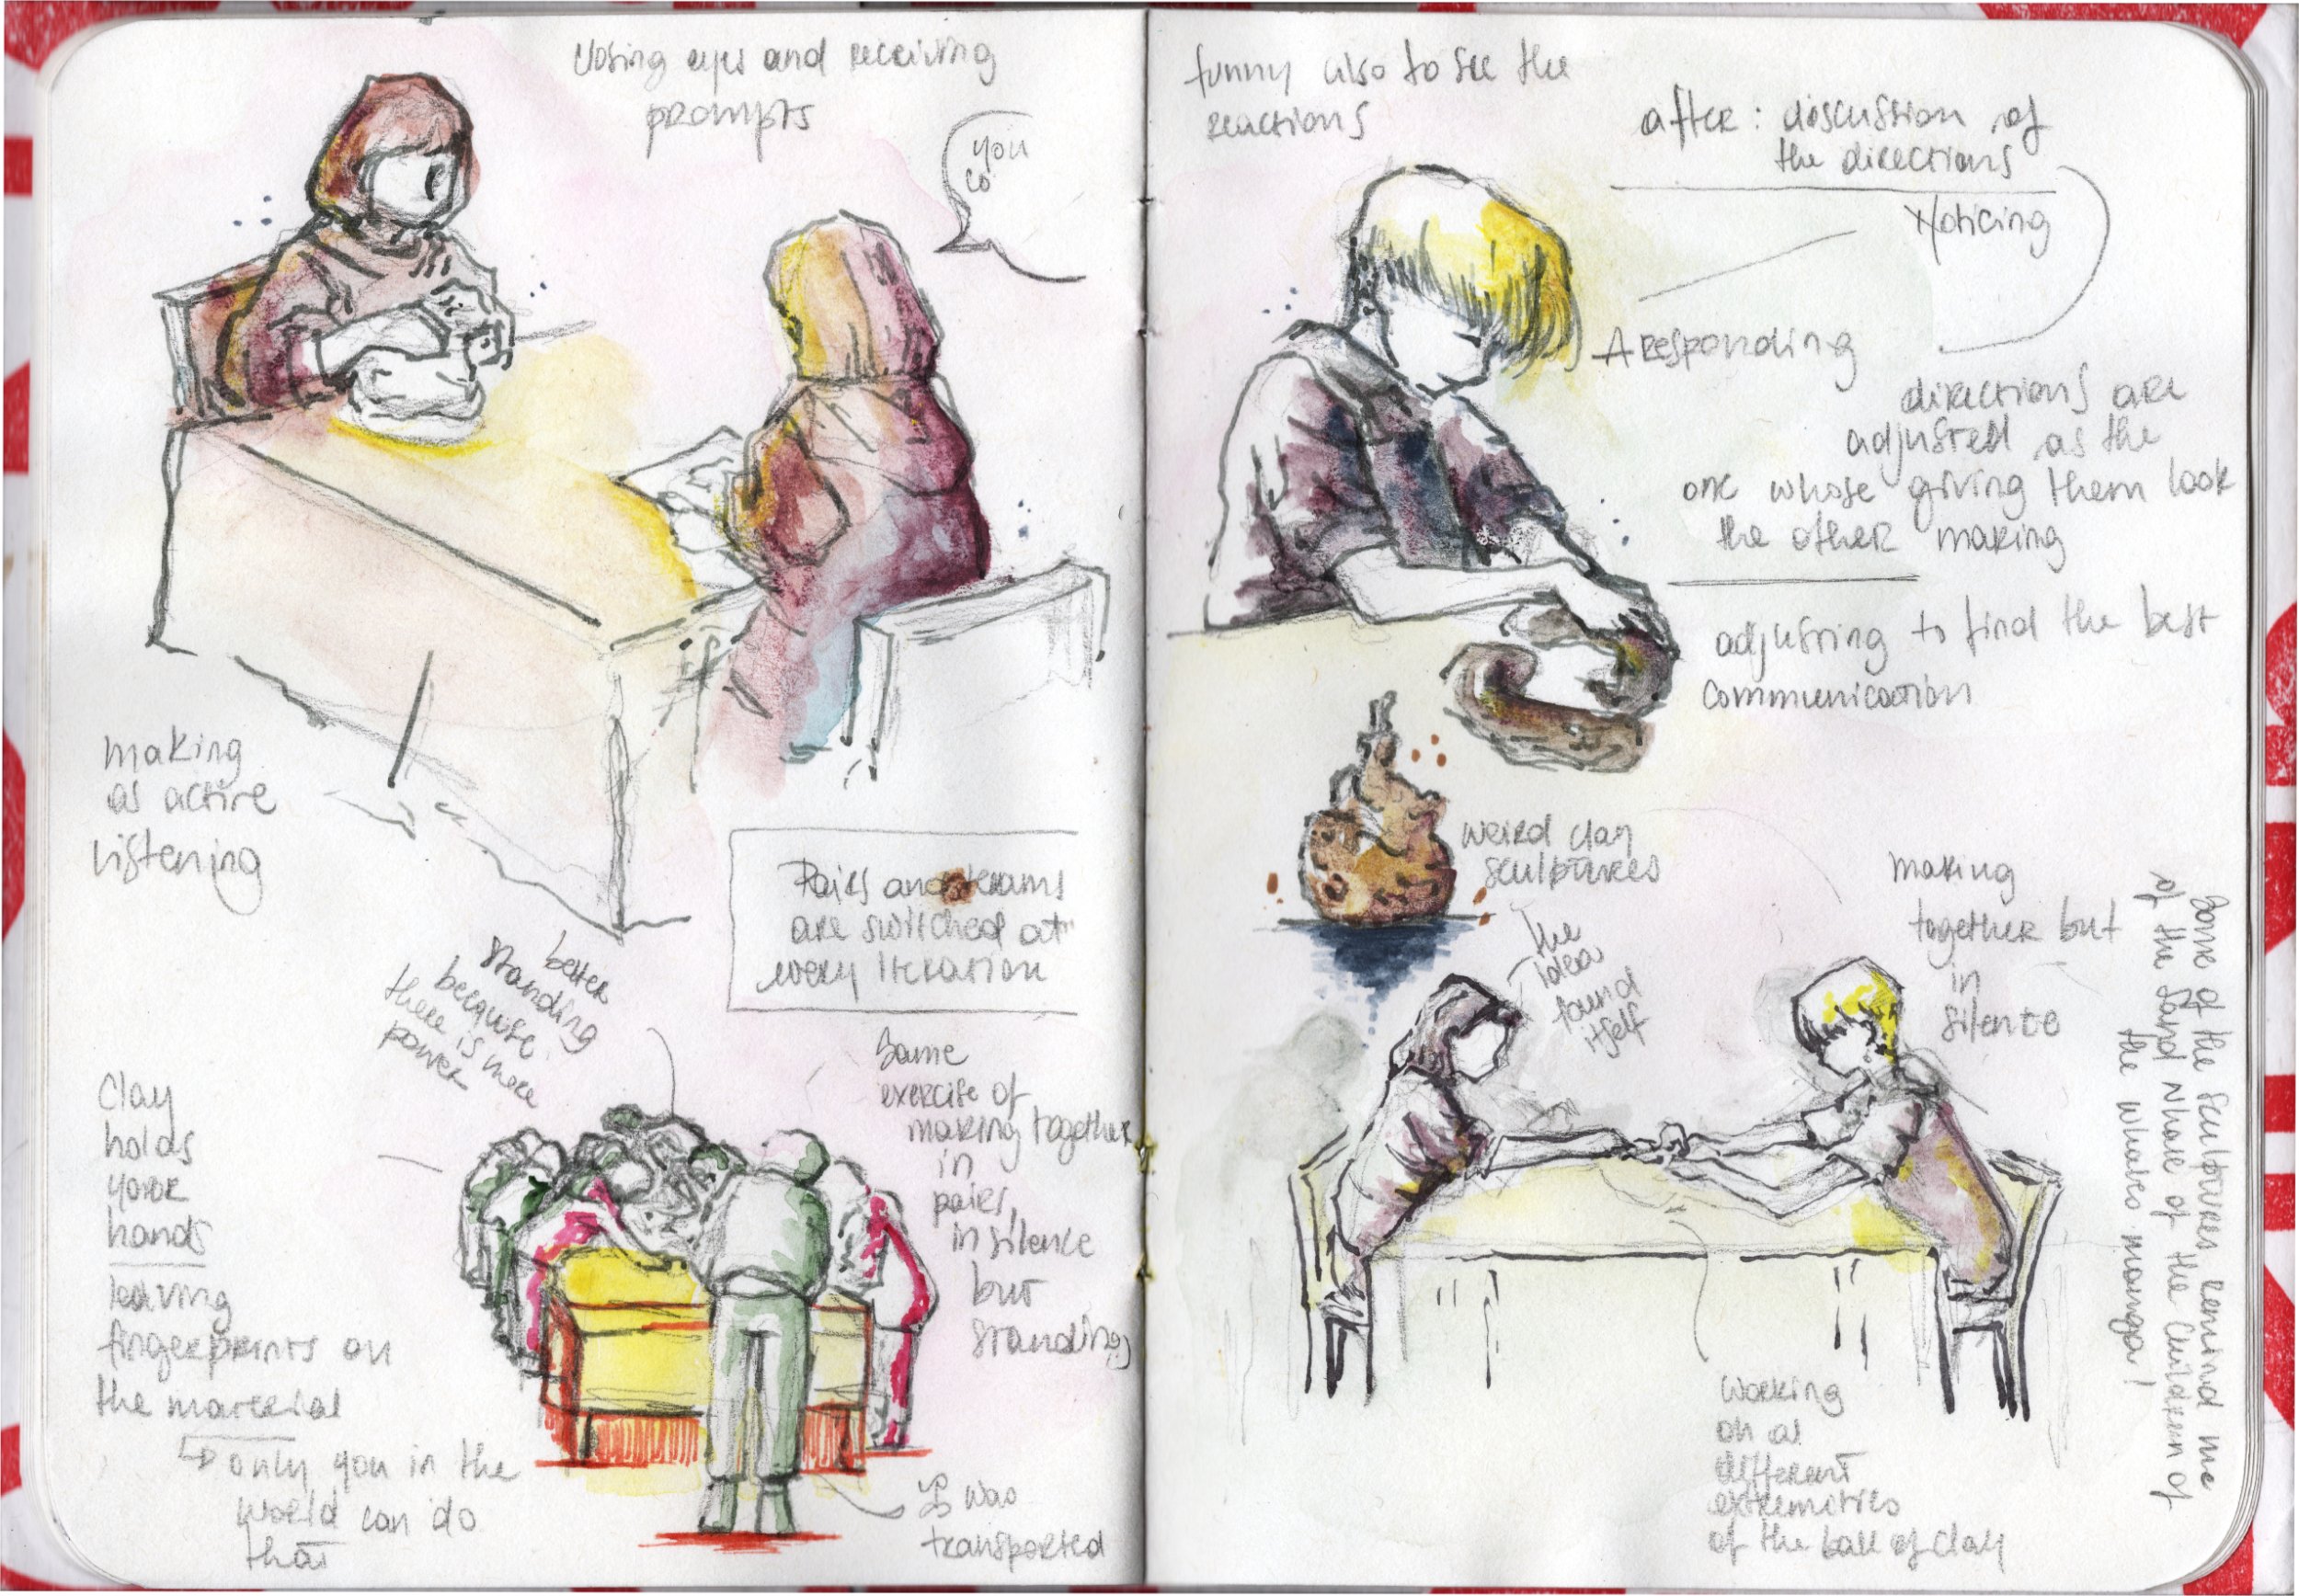 closing eyes and receiving
prompts
you
co
making
as active
listening
Pairs and teams
are switched at
every iteration
better
standing
because
there is more
power
Same
exercise of
making together
in
pairs,
in silence
but
standing
Clay
holds
your
hands
leaving
fingerprints on
the material
↳ only you in the
world can do
that
was
transported
funny also to see the
reactions
after: discussion of
the directions
Noticing
responding
directions are
adjusted as the
one whose giving them look
the other making
adjusting to find the best
communication
weird clay
sculptures
the
idea
found
itself
making
together but
in
silence
Some of the sculptures remind me
of the sand whale of the Children of
the whales manga!
Working
on
different
extremities
of the ball of clay